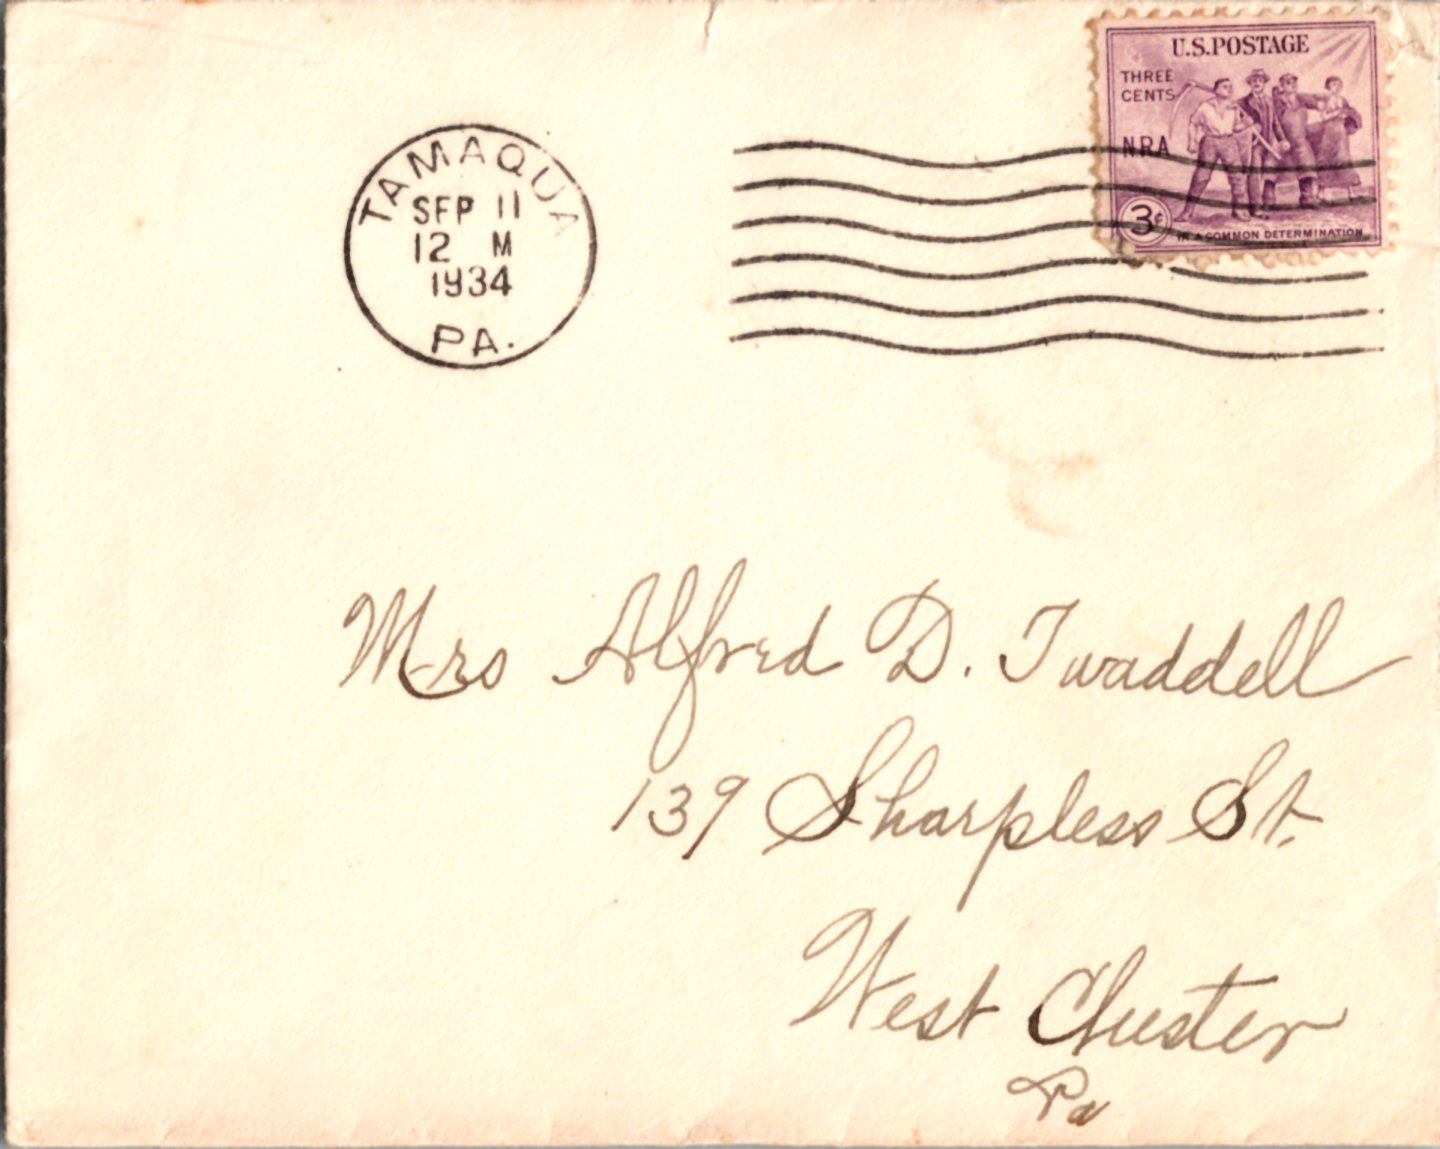 U.S.POSTAGE
THREE
CENTS
NRA
3¢
IN A COMMON DETERMINATION
TAMAQUA
SEP 11
12 M
1934
PA.
Mrs Alfred D. Twaddell
139 Sharpless St.
West Chester
Pa